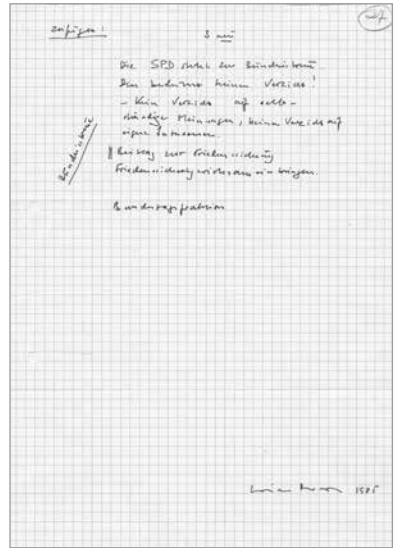 einfügen!
3 neu
Die SPD steht zur Bündnistreue.
Das bedeutet keinen Verzicht!
– Kein Verzicht auf selb-
ständige Meinungen, keinen Verzicht auf
eigene Interessen.
Bündnistreue
Beitrag zur Friedenssicherung
Friedenssicherung wirksam einbringen.
Bundestagsfraktion
1985